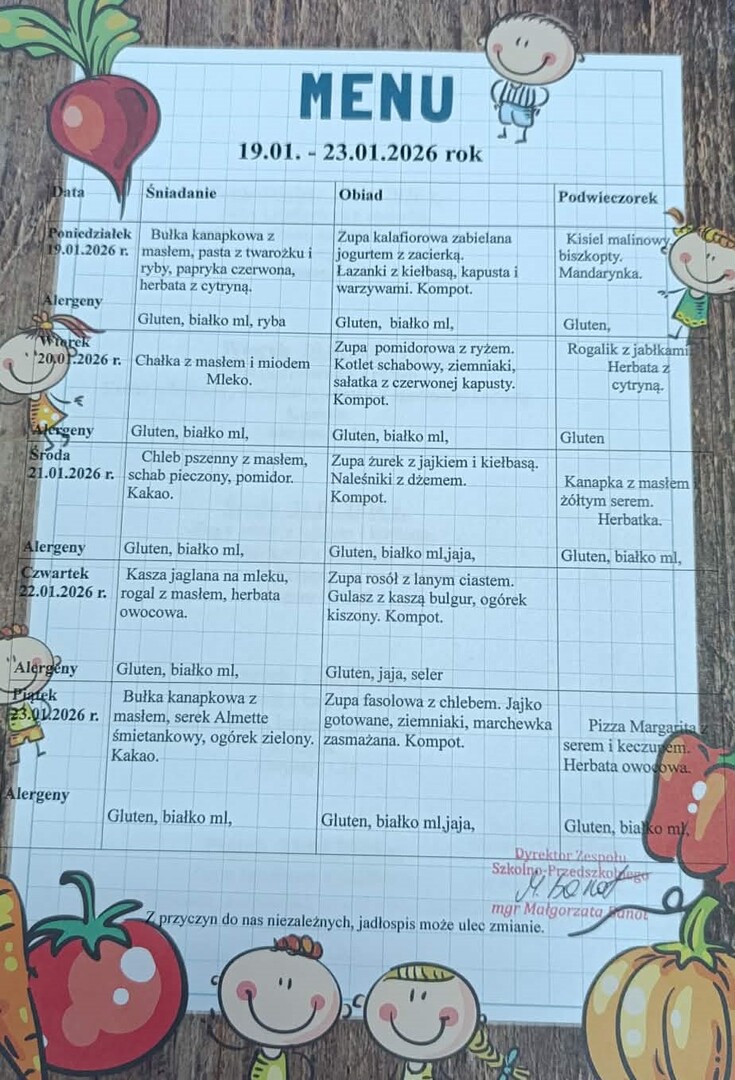 MENU
19.01. - 23.01.2026 rok
Data
Śniadanie
Obiad
Podwieczorek
Poniedziałek
19.01.2026 r.
Alergeny
Bułka kanapkowa z
masłem, pasta z twarożku i
ryby, papryka czerwona,
herbata z cytryną.
Gluten, białko ml, ryba
Zupa kalafiorowa zabielana
jogurtem z zacierką.
Łazanki z kiełbasą, kapusta i
warzywami. Kompot.
Gluten, białko ml,
Kisiel malinowy
biszkopty.
Mandarynka.
Gluten,
Wtorek
20.01.2026 r.
Alergeny
Chałka z masłem i miodem
Mleko.
Gluten, białko ml,
Zupa pomidorowa z ryżem.
Kotlet schabowy, ziemniaki,
sałatka z czerwonej kapusty.
Kompot.
Gluten, białko ml,
Rogalik z jabłkami
Herbata z
cytryną.
Gluten
Środa
21.01.2026 r.
Alergeny
Chleb pszenny z masłem,
schab pieczony, pomidor.
Kakao.
Gluten, białko ml,
Zupa żurek z jajkiem i kiełbasą.
Naleśniki z dżemem.
Kompot.
Gluten, białko ml,jaja,
Kanapka z masłem i
żółtym serem.
Herbatka.
Gluten, białko ml,
Czwartek
22.01.2026 r.
Alergeny
Kasza jaglana na mleku,
rogal z masłem, herbata
owocowa.
Gluten, białko ml,
Zupa rosół z lanym ciastem.
Gulasz z kaszą bulgur, ogórek
kiszony. Kompot.
Gluten, jaja, seler
Piątek
23.01.2026 r.
Alergeny
Bułka kanapkowa z
masłem, serek Almette
śmietankowy, ogórek zielony.
Kakao.
Gluten, białko ml,
Zupa fasolowa z chlebem. Jajko
gotowane, ziemniaki, marchewka
zasmażana. Kompot.
Gluten, białko ml,jaja,
Pizza Margarita z
serem i keczupem.
Herbata owocowa.
Gluten, białko ml,
Dyrektor Zespołu
Szkolno-Przedszkolnego
mgr Małgorzata Banot
Z przyczyn do nas niezależnych, jadłospis może ulec zmianie.